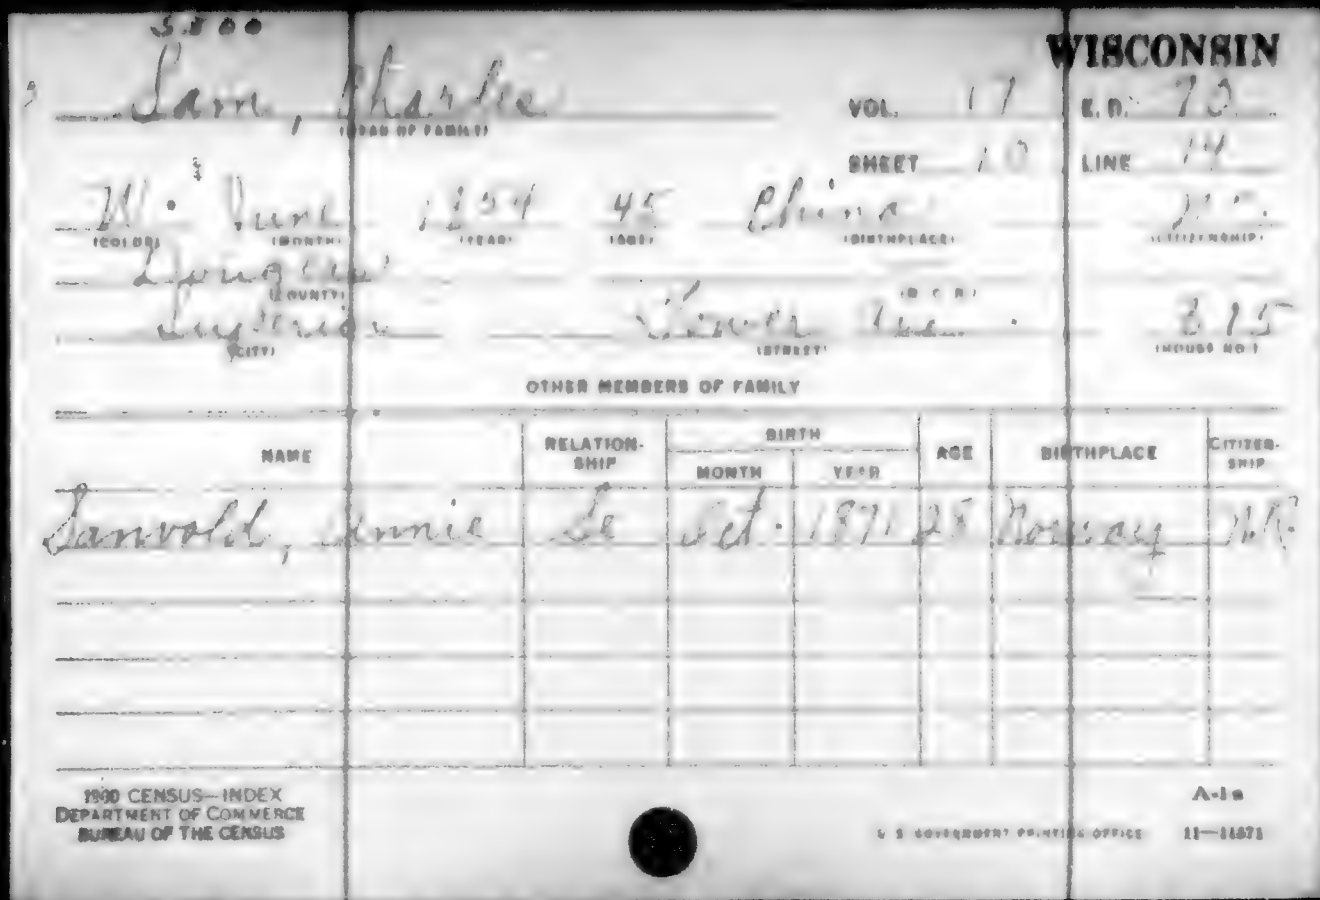 S500
WISCONSIN
Sam, Charles
(HEAD OF FAMILY)
VOL. 17 E. D. 70
SHEET 10 LINE 14
W. June 1854 45 China
(COLOR) (MONTH) (YEAR) (AGE) (BIRTHPLACE) (CITIZENSHIP)
Douglas
(COUNTY) (M. C. D.)
Superior Tower Ave. 815
(CITY) (STREET) (HOUSE NO.)
OTHER MEMBERS OF FAMILY
NAME RELATION-SHIP BIRTH MONTH YEAR AGE BIRTHPLACE CITIZEN-SHIP
Sanvold, Annie Se Oct. 1871 28 Norway NR
1900 CENSUS—INDEX
DEPARTMENT OF COMMERCE
BUREAU OF THE CENSUS
A-1a
U. S. GOVERNMENT PRINTING OFFICE 11—